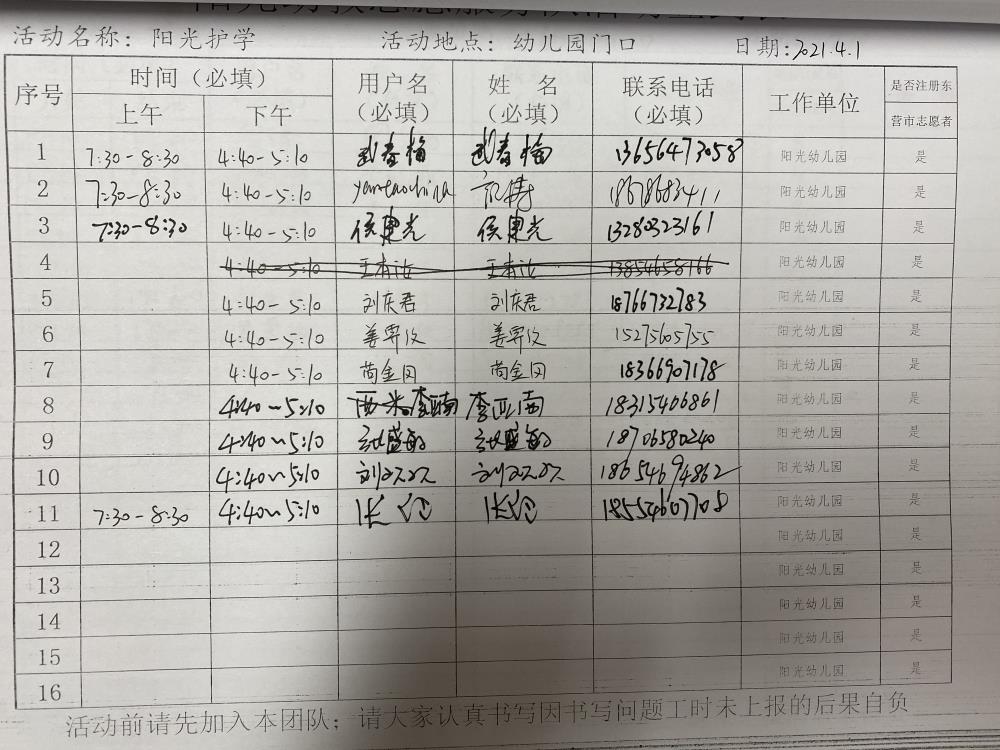 活动名称: 阳光护学 活动地点: 幼儿园门口 日期: 2021.4.1
序号 时间(必填) 用户名(必填) 姓名(必填) 联系电话(必填) 工作单位 是否注册东营市志愿者
上午 下午
1 7:30-8:30 4:40-5:10 武春梅 武春梅 13656473058 阳光幼儿园 是
2 7:30-8:30 4:40-5:10 18678683411 阳光幼儿园 是
3 7:30-8:30 4:40-5:10 侯建光 侯建光 13280323161 阳光幼儿园 是
4 4:40-5:10 13854658166 阳光幼儿园 是
5 4:40-5:10 刘庆君 刘庆君 18766732783 阳光幼儿园 是
6 4:40-5:10 15275605755 阳光幼儿园 是
7 4:40-5:10 18366907178 阳光幼儿园 是
8 4:40~5:10 李亚南 18315406861 阳光幼儿园 是
9 4:40~5:10 18706580240 阳光幼儿园 是
10 4:40~5:10 刘欢欢 刘欢欢 18654694862 阳光幼儿园 是
11 7:30-8:30 4:40~5:10 18554607708 阳光幼儿园 是
12 阳光幼儿园 是
13 阳光幼儿园 是
14 阳光幼儿园 是
15 阳光幼儿园 是
16 阳光幼儿园 是
活动前请先加入本团队; 请大家认真书写因书写问题工时未上报的后果自负